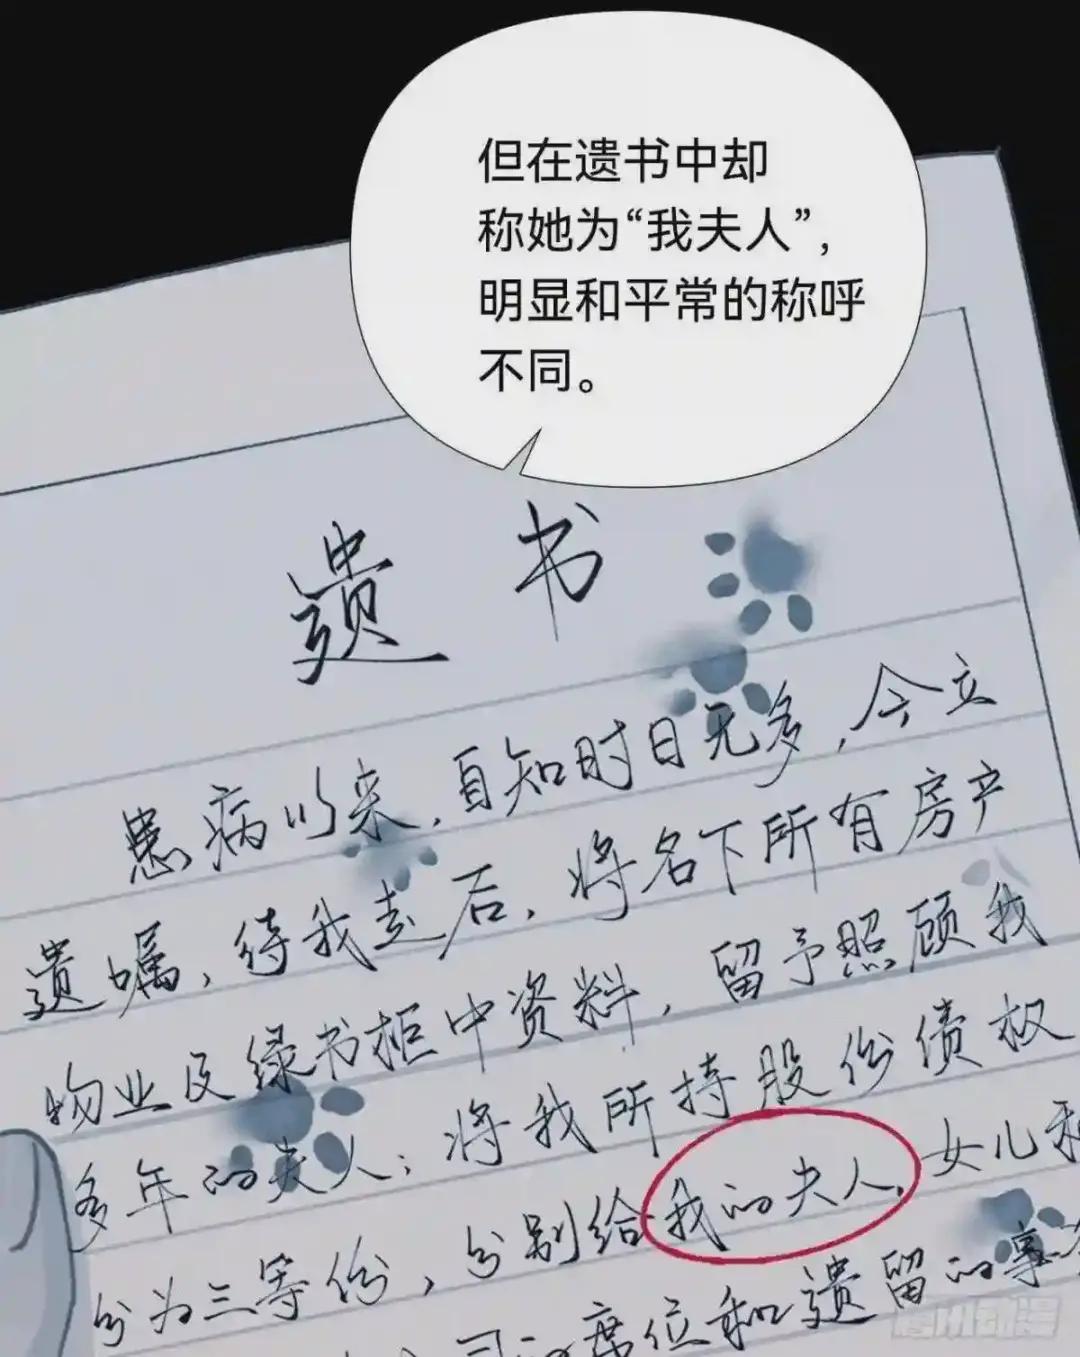 但在遗书中却
称她为“我夫人”，
明显和平常的称呼
不同。
遗书
患病以来，自知时日无多，今立
遗嘱，待我走后，将名下所有房产
物业及绿书柜中资料，留予照顾我
多年的夫人；将我所持股份债权
分为三等份，分别给我的夫人，女儿和
司 席位和遗留的事
腾讯动漫